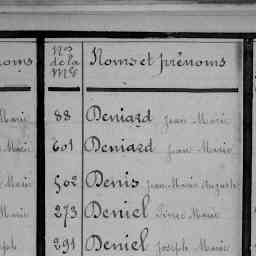 oms
Nos
de la
Mle
Noms et prénoms
Marie
88 Deniard Jean Marie
Marie
601 Deniard Jean Marie
Marie
502 Denis Jean Marie Auguste
Marie
273 Deniel Pierre Marie
seph
291 Deniel Joseph Marie